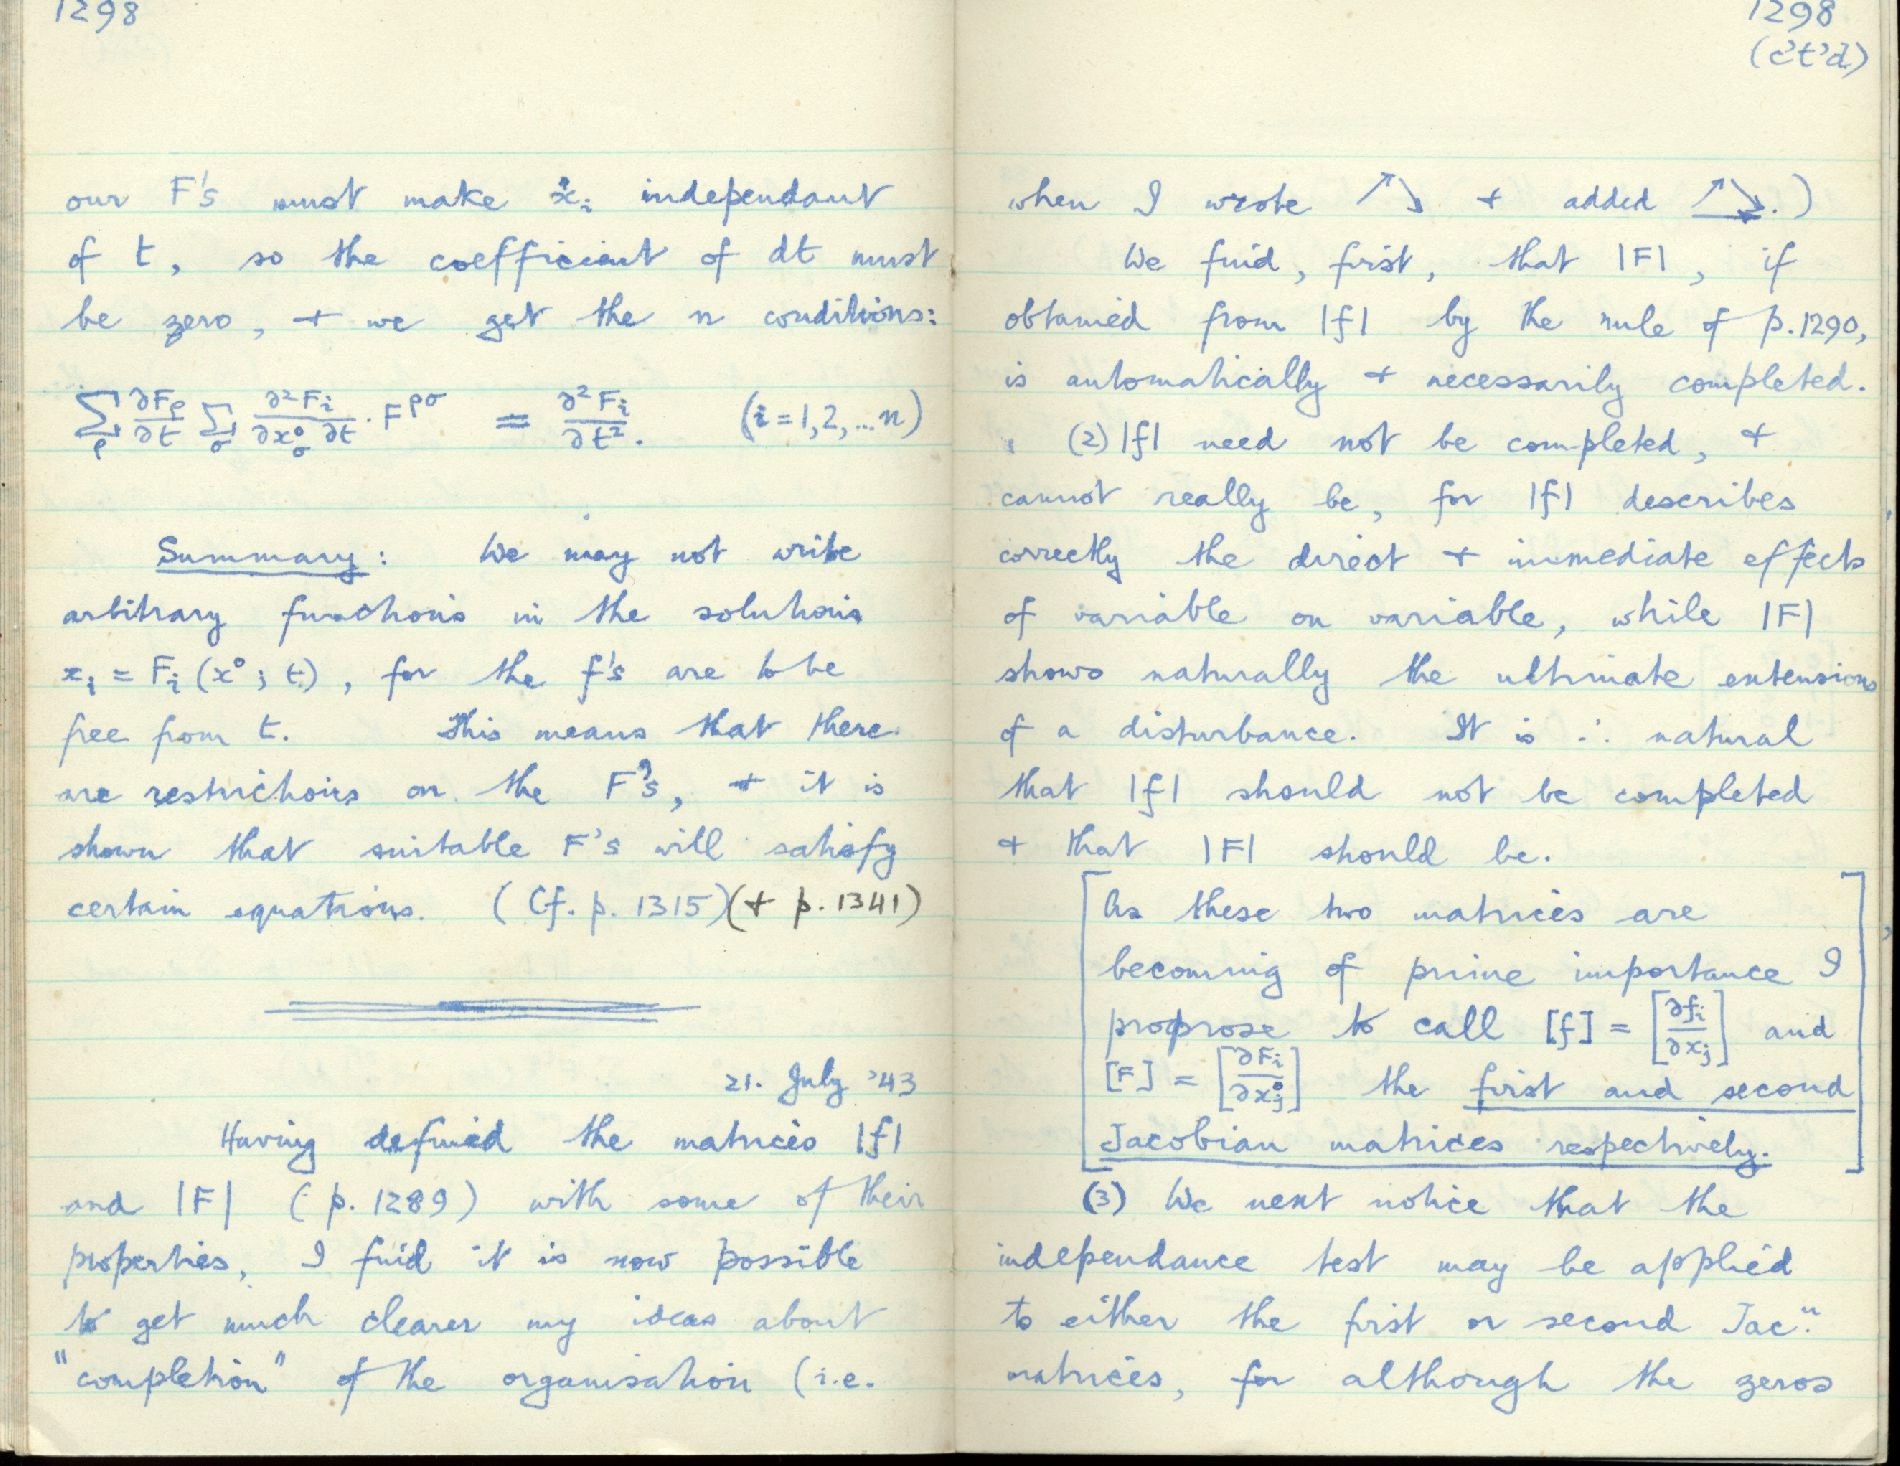 1298
our F's must make ẋᵢ independant
of t, so the coefficient of dt must
be zero, + we get the n conditions:
∑_ρ ∂F_ρ/∂t ∑_σ ∂²Fᵢ/∂x°_σ ∂t · F^ρσ = ∂²Fᵢ/∂t². (i = 1, 2, ... n)
Summary: We may not write
arbitrary functions in the solutions
xᵢ = Fᵢ (x°; t), for the f's are to be
free from t. This means that there
are restrictions on the F's, + it is
shown that suitable F's will satisfy
certain equations. (Cf. p. 1315) (+ p. 1341)
21. July '43
Having defined the matrices |f|
and |F| (p. 1289) with some of their
properties, I find it is now possible
to get much clearer my ideas about
"completion" of the organisation (i.e.
1298
(c't'd)
when I wrote ↗↘ + added ↗↘→.)
We find, first, that |F|, if
obtained from |f| by the rule of p. 1290,
is automatically + necessarily completed.
(2) |f| need not be completed, +
cannot really be, for |f| describes
correctly the direct + immediate effects
of variable on variable, while |F|
shows naturally the ultimate extensions
of a disturbance. It is ∴ natural
that |f| should not be completed
+ that |F| should be.
[As these two matrices are
becoming of prime importance I
proprose to call [f] = [∂fᵢ/∂xⱼ] and
[F] = [∂Fᵢ/∂x°ⱼ] the first and second
Jacobian matrices respectively.]
(3) We next notice that the
independance test may be applied
to either the first or second Jacⁿ.
matrices, for although the zeros